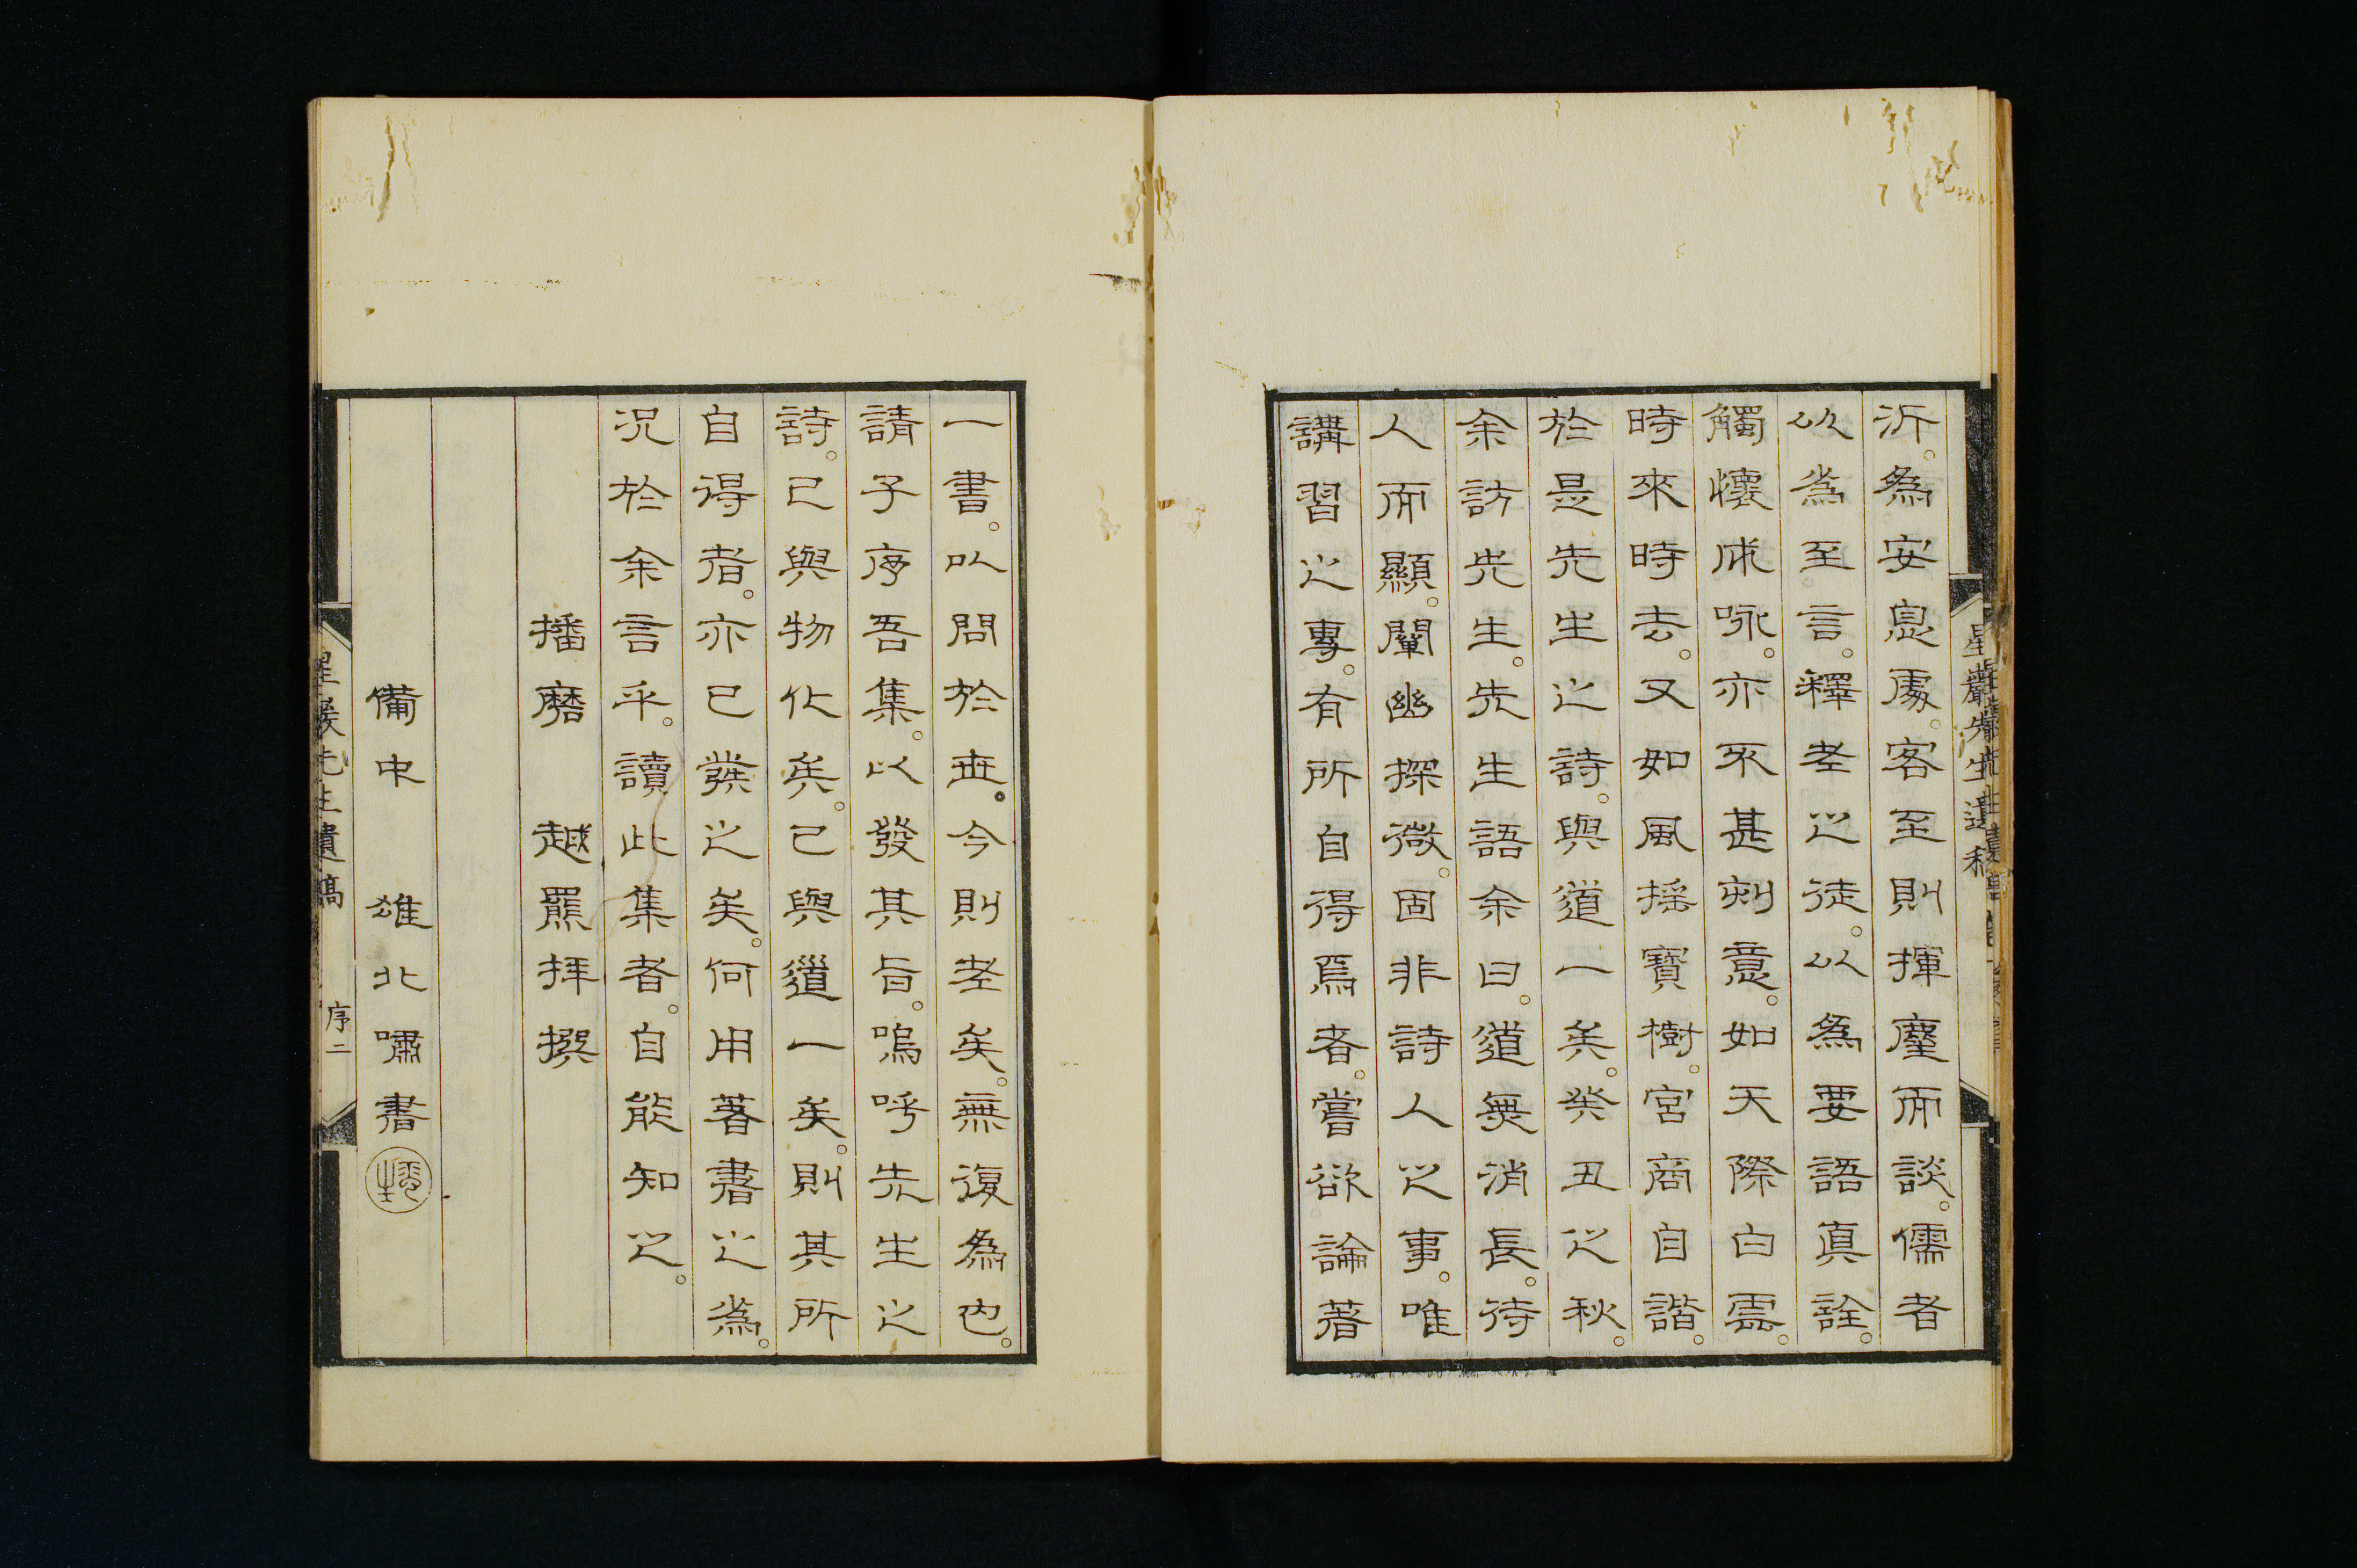 沂。為安息處。客至則揮麈而談。儒者
以為至言。釋老之徒。以為要語真詮。
觸懷成咏。亦不甚刻意。如天際白雲。
時來時去。又如風搖寶樹。宮商自諧。
於是先生之詩。與道一矣。癸丑之秋。
余訪先生。先生語余曰。道無消長。待
人而顯。闡幽探微。固非詩人之事。唯
講習之專。有所自得焉者。嘗欲論著
一書。以問於世。今則老矣。無復為也。
請子序吾集。以發其旨。嗚呼先生之
詩。已與物化矣。已與道一矣。則其所
自得者。亦已發之矣。何用著書之為。
況於余言乎。讀此集者。自能知之。
播磨　越羆拜撰
備中　雄北嘯書
星巖先生遺稿
序二